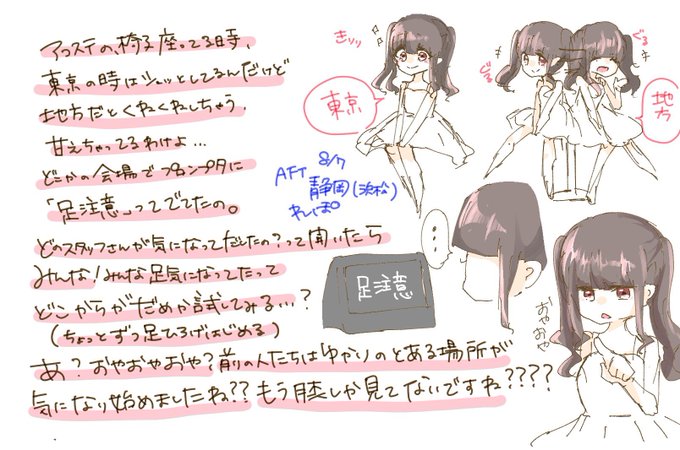 アコステの、椅子座ってる時、
東京の時はシュッとしてるんだけど
地方だとくねくねしちゃう。
甘えちゃってるわけよ…
どこかの会場でプロンプタに
「足注意」ってでてたの。
どのスタッフさんが気になってだしたの？って聞いたら
みんな！みんな足気になってたって
どこからがだめか試してみる…？
(ちょっとずつ足ひろげはじめる)
あ？おやおやおや？前の人たちはゆかりのとある場所が
気になり始めましたね？？もう膝しか見てないですね？？？？
キリッ
東京
ぐる
ぐる
地方
AFT 8/7
静岡(浜松)
れぽ
…
足注意
おやおや